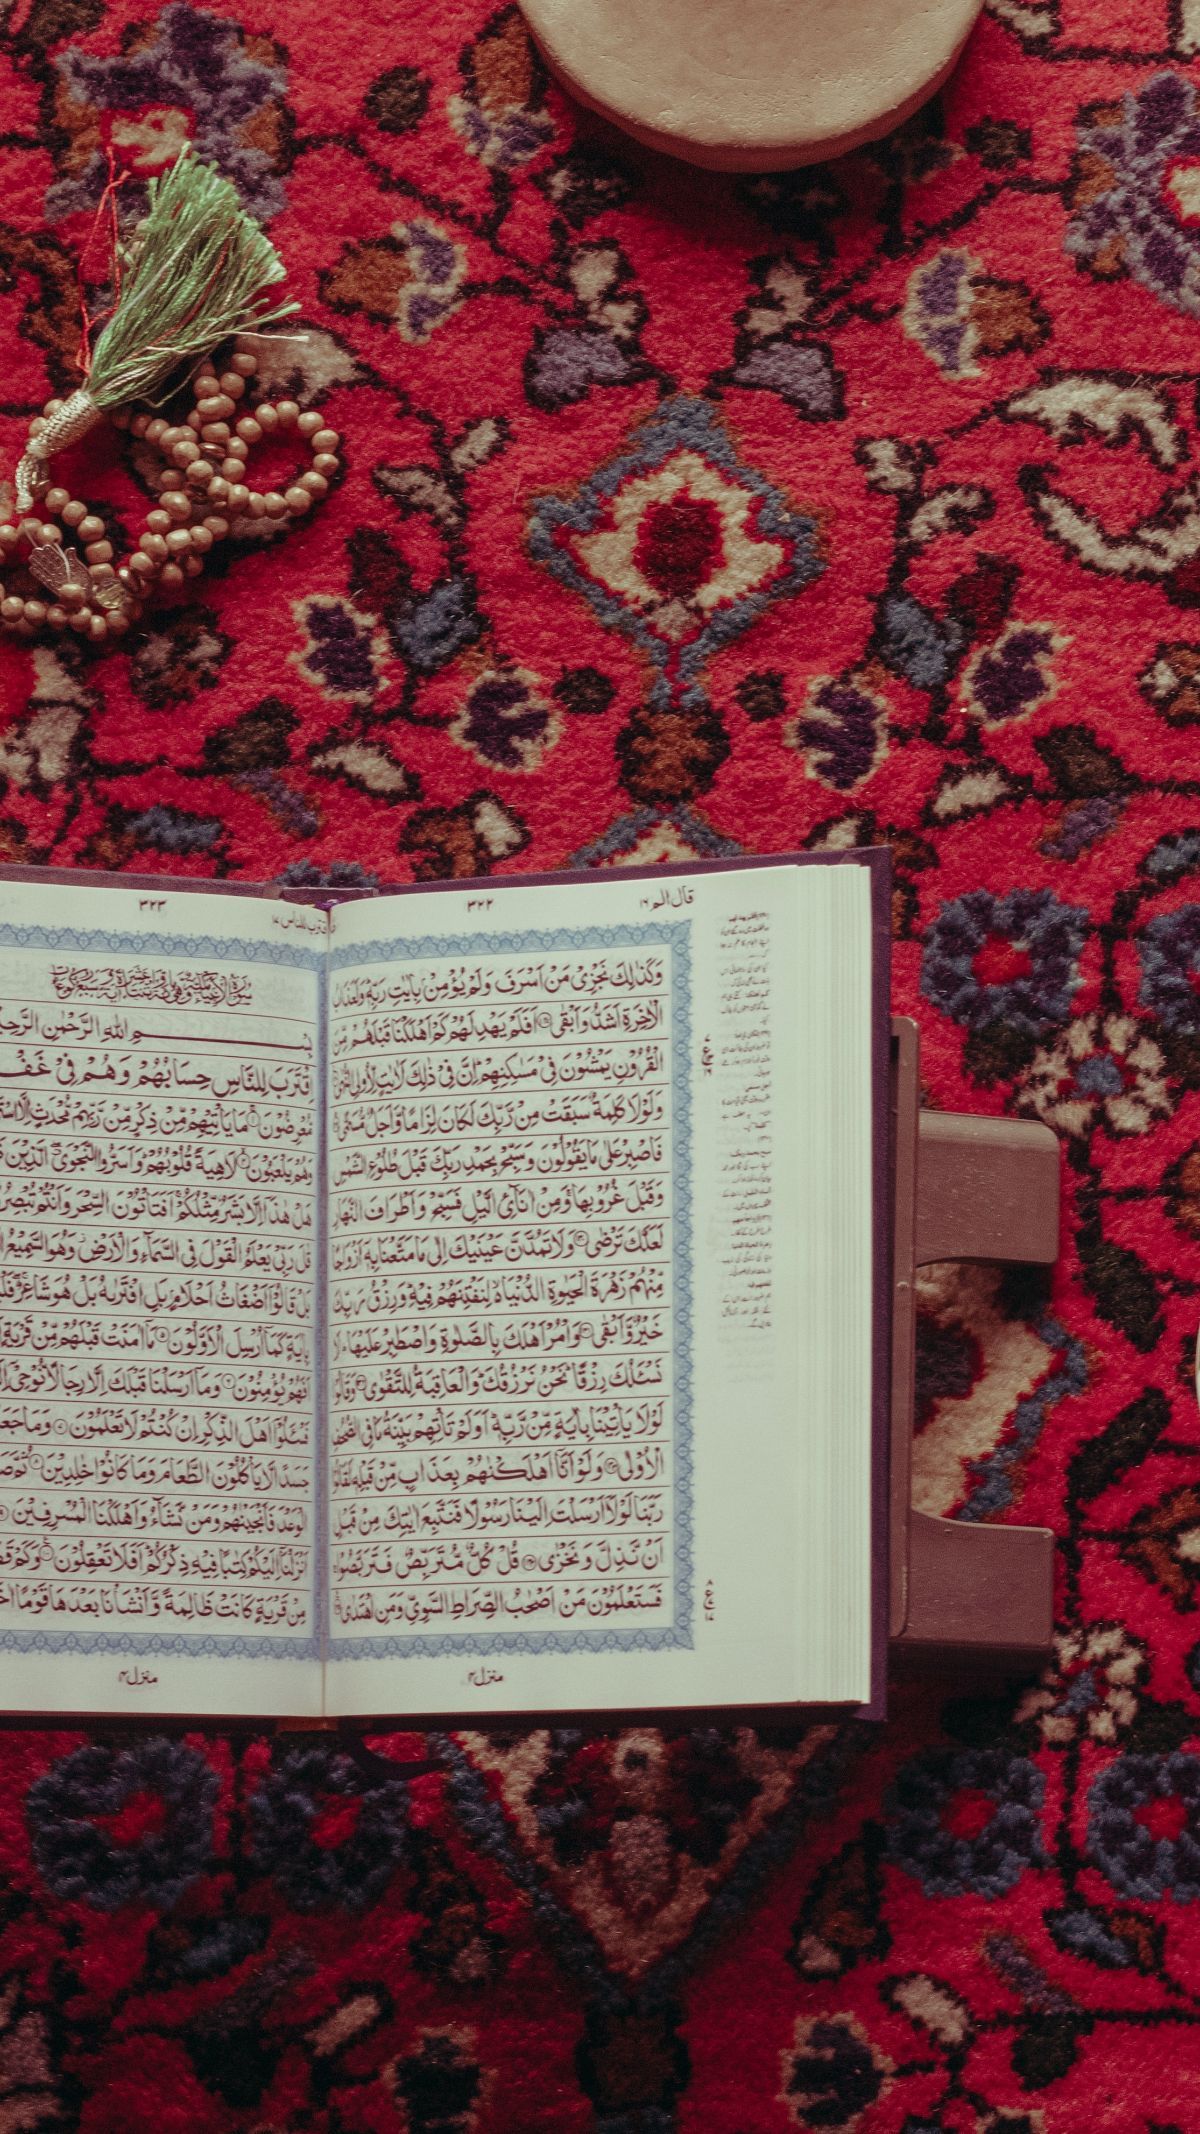 قال الم ١٦
٣٢٢
وَكَذٰلِكَ نَجْزِىْ مَنْ اَسْرَفَ وَلَمْ يُؤْمِنْۢ بِاٰيٰتِ رَبِّهٖ ؕ وَلَعَذَابُ
الْاٰخِرَةِ اَشَدُّ وَاَبْقٰى اَفَلَمْ يَهْدِ لَهُمْ كَمْ اَهْلَكْنَا قَبْلَهُمْ مِّنَ
الْقُرُوْنِ يَمْشُوْنَ فِىْ مَسٰكِنِهِمْ ؕ اِنَّ فِىْ ذٰلِكَ لَاٰيٰتٍ لِّاُولِى النُّهٰى
وَلَوْلَا كَلِمَةٌ سَبَقَتْ مِنْ رَّبِّكَ لَكَانَ لِزَامًا وَّاَجَلٌ مُّسَمًّى
فَاصْبِرْ عَلٰى مَا يَقُوْلُوْنَ وَسَبِّحْ بِحَمْدِ رَبِّكَ قَبْلَ طُلُوْعِ الشَّمْسِ
وَقَبْلَ غُرُوْبِهَا ۚ وَمِنْ اٰنَآئِ الَّيْلِ فَسَبِّحْ وَاَطْرَافَ النَّهَارِ
لَعَلَّكَ تَرْضٰى وَلَا تَمُدَّنَّ عَيْنَيْكَ اِلٰى مَا مَتَّعْنَا بِهٖۤ اَزْوَاجًا
مِّنْهُمْ زَهْرَةَ الْحَيٰوةِ الدُّنْيَا ۙ لِنَفْتِنَهُمْ فِيْهِ ؕ وَرِزْقُ رَبِّكَ
خَيْرٌ وَّاَبْقٰى وَاْمُرْ اَهْلَكَ بِالصَّلٰوةِ وَاصْطَبِرْ عَلَيْهَا ؕ لَا
نَسْـَٔلُكَ رِزْقًا ؕ نَحْنُ نَرْزُقُكَ ؕ وَالْعَاقِبَةُ لِلتَّقْوٰى وَقَالُوْا
لَوْلَا يَاْتِيْنَا بِاٰيَةٍ مِّنْ رَّبِّهٖ ؕ اَوَلَمْ تَاْتِهِمْ بَيِّنَةُ مَا فِى الصُّحُفِ
الْاُوْلٰى وَلَوْ اَنَّاۤ اَهْلَكْنٰهُمْ بِعَذَابٍ مِّنْ قَبْلِهٖ لَقَالُوْا
رَبَّنَا لَوْلَاۤ اَرْسَلْتَ اِلَيْنَا رَسُوْلًا فَنَتَّبِعَ اٰيٰتِكَ مِنْ قَبْلِ
اَنْ نَّذِلَّ وَنَخْزٰى قُلْ كُلٌّ مُّتَرَبِّصٌ فَتَرَبَّصُوْا ۚ
فَسَتَعْلَمُوْنَ مَنْ اَصْحٰبُ الصِّرَاطِ السَّوِىِّ وَمَنِ اهْتَدٰى
منزل ٤
اقترب للناس ١٧
٣٢٣
بِسْمِ اللهِ الرَّحْمٰنِ الرَّحِيْ
اِقْتَرَبَ لِلنَّاسِ حِسَابُهُمْ وَهُمْ فِىْ غَفْ
مُّعْرِضُوْنَ مَا يَاْتِيْهِمْ مِّنْ ذِكْرٍ مِّنْ رَّبِّهِمْ مُّحْدَثٍ اِلَّا اسْتَ
وَهُمْ يَلْعَبُوْنَ لَاهِيَةً قُلُوْبُهُمْ ؕ وَاَسَرُّوا النَّجْوَى ۖ الَّذِيْنَ
هَلْ هٰذَاۤ اِلَّا بَشَرٌ مِّثْلُكُمْ ۚ اَفَتَاْتُوْنَ السِّحْرَ وَاَنْتُمْ تُبْصِرُ
قٰلَ رَبِّىْ يَعْلَمُ الْقَوْلَ فِى السَّمَآءِ وَالْاَرْضِ ؗ وَهُوَ السَّمِيْعُ
بَلْ قَالُوْۤا اَضْغَاثُ اَحْلَامٍۭ بَلِ افْتَرٰىهُ بَلْ هُوَ شَاعِرٌ ۖ فَلْ
بِاٰيَةٍ كَمَاۤ اُرْسِلَ الْاَوَّلُوْنَ مَاۤ اٰمَنَتْ قَبْلَهُمْ مِّنْ قَرْيَةٍ
اَفَهُمْ يُؤْمِنُوْنَ وَمَاۤ اَرْسَلْنَا قَبْلَكَ اِلَّا رِجَالًا نُّوْحِىْۤ
فَسْـَٔلُوْۤا اَهْلَ الذِّكْرِ اِنْ كُنْتُمْ لَا تَعْلَمُوْنَ وَمَا جَعَ
جَسَدًا لَّا يَاْكُلُوْنَ الطَّعَامَ وَمَا كَانُوْا خٰلِدِيْنَ ثُمَّ صَ
الْوَعْدَ فَاَنْجَيْنٰهُمْ وَمَنْ نَّشَآءُ وَاَهْلَكْنَا الْمُسْرِفِيْنَ
اَنْزَلْنَاۤ اِلَيْكُمْ كِتٰبًا فِيْهِ ذِكْرُكُمْ ؕ اَفَلَا تَعْقِلُوْنَ وَكَمْ قَ
مِنْ قَرْيَةٍ كَانَتْ ظَالِمَةً وَّاَنْشَاْنَا بَعْدَهَا قَوْمًا
منزل ٤